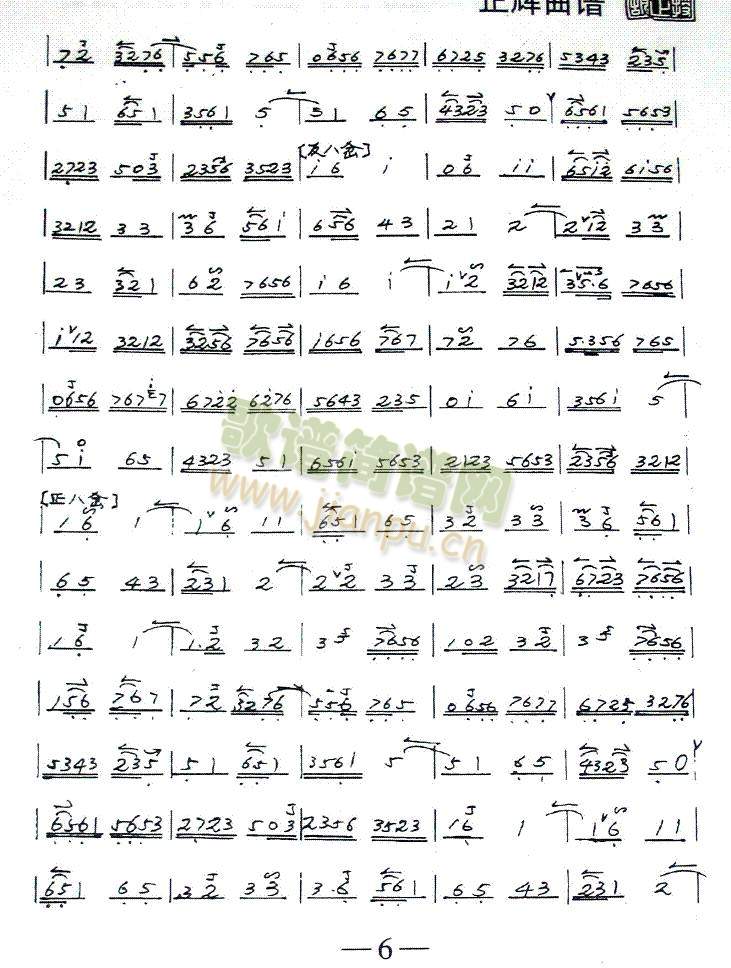 正辉曲谱
| 7 2 3276 | 556 765 | 0656 7677 | 6725 3276 | 5343 235 |
| 51 651 | 3561 5 | 31 65 | 4323 50 | 6561 5653 |
| 2723 503 | 2356 3523 | i6 i | 06 ii | 65i2 6i56 |
[反八岔]
| 3212 33 | 36 56i | 656 43 | 21 2 | 212 33 |
| 23 321 | 62 7656 | i6 i | i2 3212 | 35·6 7656 |
| i12 3212 | 3256 7656 | i656 767 | 72 76 | 5·356 765 |
| 0656 7677 | 6722 6276 | 5643 235 | 0i 6i | 356i 5 |
5i 65 | 4323 51 | 656i 5653 | 2123 5653 | 2356 3212 |
[正八岔]
| 16 1 | 16 11 | 651 65 | 32 33 | 36 561 |
| 65 43 | 231 2 | 22 33 | 23 3217 | 6723 7656 |
| 16 1 | 1·2 32 | 35 7656 | 102 32 | 35 7656 |
| 156 767 | 72 3276 | 556 765 | 0656 7677 | 6725 3276 |
| 5343 235 | 51 651 | 3561 5 | 51 65 | 4323 50 |
| 6561 5653 | 2723 503 | 2356 3523 | 16 1 | 16 11 |
| 651 65 | 32 33 | 3·6 561 | 65 43 | 231 2 |
歌谱简谱网
www.jianpu.cn
—6—